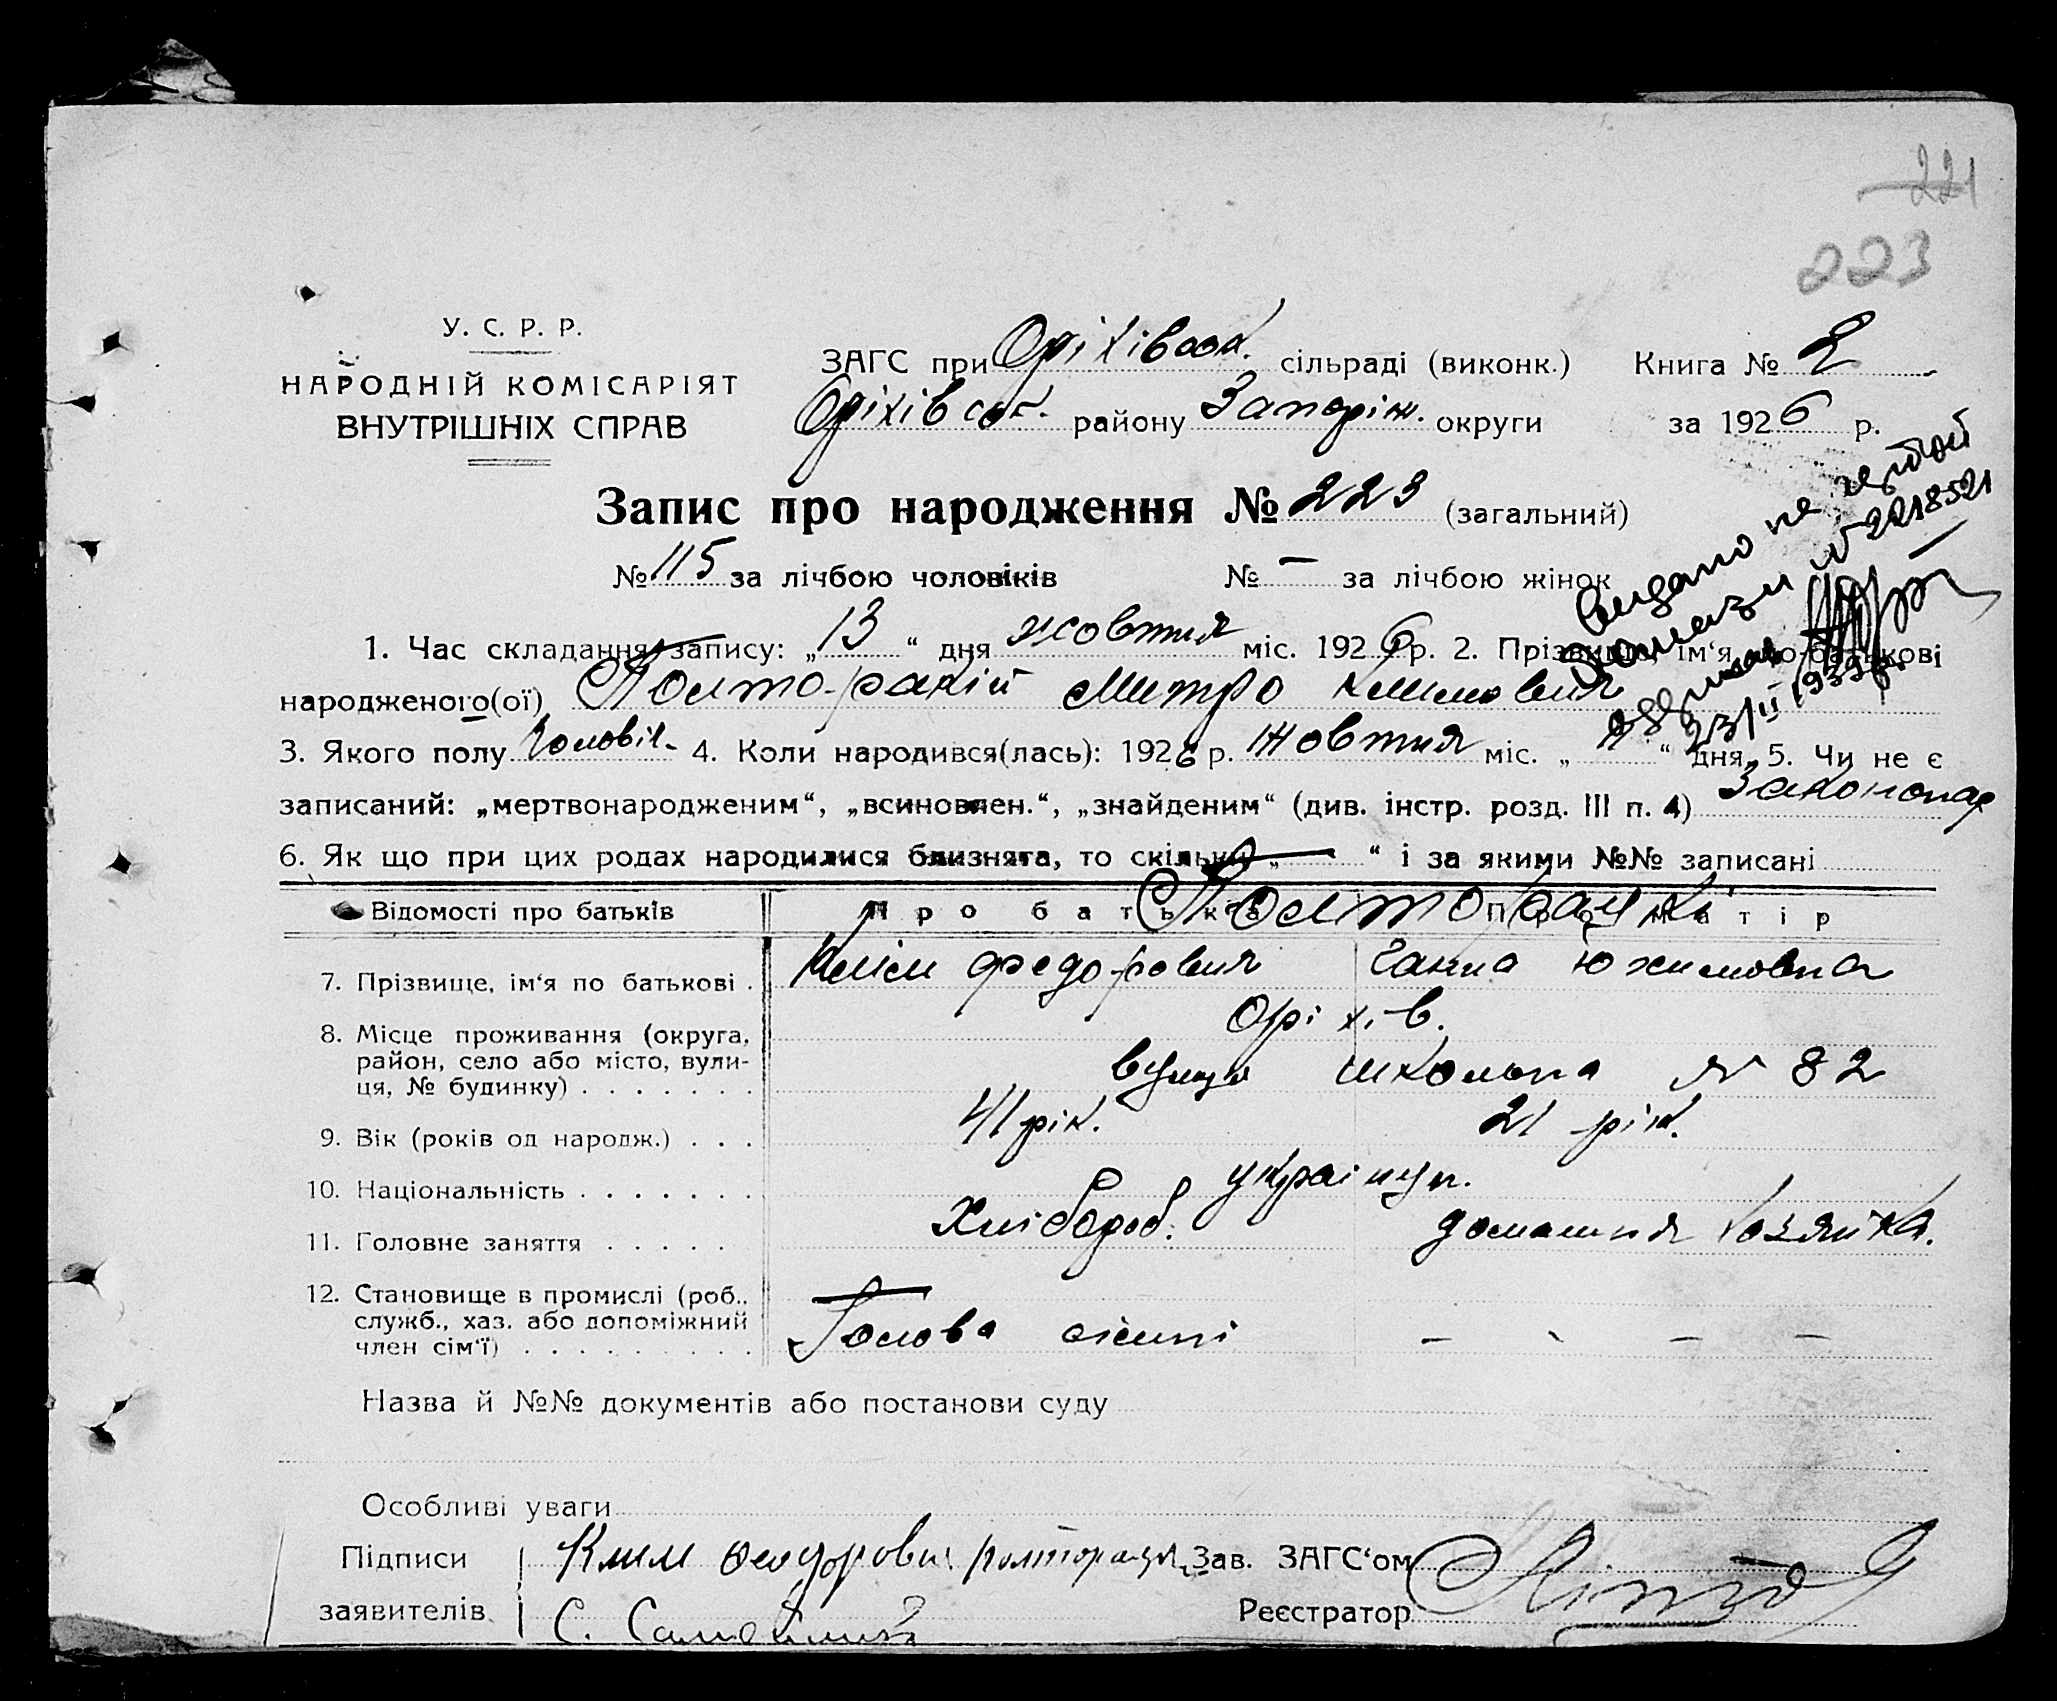 221
223
У. С. Р. Р.
НАРОДНІЙ КОМІСАРІЯТ
ВНУТРІШНІХ СПРАВ
ЗАГС при Оріхівськ. сільраді (виконк.) Книга № 2
Оріхівськ. району Запоріж. округи за 1926 р.
Запис про народження № 223 (загальний)
№ 115 за лічбою чоловіків № — за лічбою жінок
Видано
№ 2218521
23/II 1939р.
1. Час складання запису: „13“ дня жовтня міс. 1926 р. 2. Прізвище, ім'я по-батькові і
народженого(ої) Полторацкій Митро Климович
3. Якого полу чоловіч. 4. Коли народився(лась): 1926 р. жовтня міс. „ “ дня, 5. Чи не є
записаний: „мертвонародженим“, „всиновлен.“, „знайденим“ (див. інстр. розд. III п. 4)
6. Як що при цих родах народилися близнята, то скільки „—“ і за якими №№ записані
Відомості про батьків Про батька Про матір
Полторацкі
7. Прізвище, ім‘я по батькові . Клім Федорович Ганна Юхимовна
8. Місце проживання (округа, Оріхів.
район, село або місто, вули-
ця, № будинку) . . . . . . . вулиця школьна № 82
9. Вік (років од народж.) . . . 41 рік. 21 рік.
10. Національність . . . . . . . українц.
11. Головне заняття . . . . . Хлібороб. домашня хозяйка.
12. Становище в промислі (роб.,
служб., хаз. або допоміжний
член сім‘ї) . . . . . . . . . Голова сімї — — — —
Назва й №№ документів або постанови суду
Особливі уваги
Підписи Клим Зав. ЗАГС‘ом
заявителів С. Реєстратор